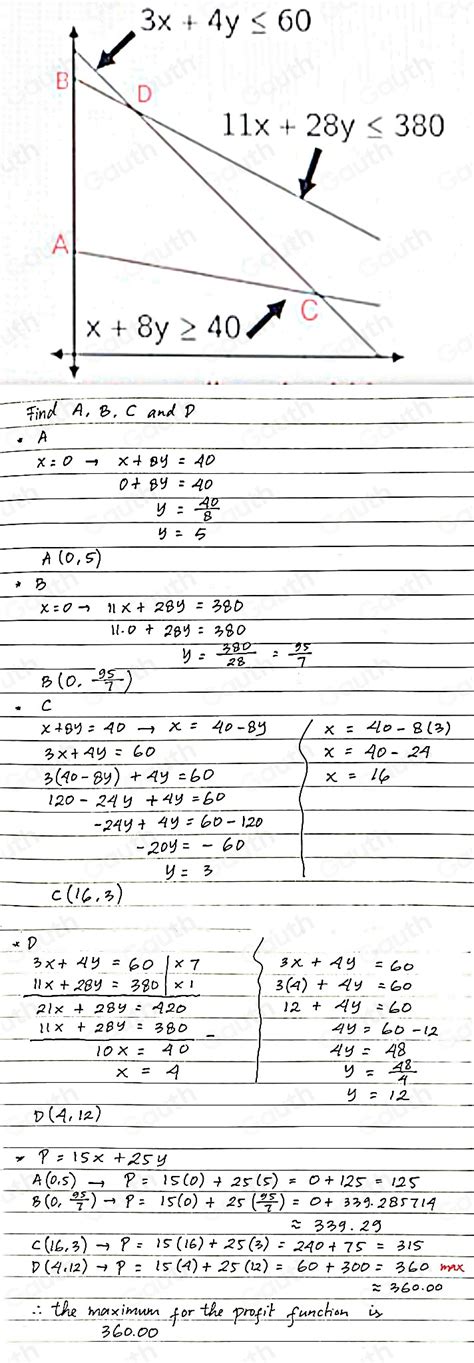 3x + 4y ≤ 60
B
D
11x + 28y ≤ 380
A
x + 8y ≥ 40
C
Find A, B, C and D
• A
x = 0 → x + 8y = 40
0 + 8y = 40
y = 40/8
y = 5
A (0, 5)
* B
x = 0 → 11x + 28y = 380
11.0 + 28y = 380
y = 380/28 = 95/7
B (0, 95/7)
• C
x + 8y = 40 → x = 40 - 8y
3x + 4y = 60
3(40 - 8y) + 4y = 60
120 - 24y + 4y = 60
-24y + 4y = 60 - 120
-20y = - 60
y = 3
x = 40 - 8(3)
x = 40 - 24
x = 16
C (16, 3)
* D
3x + 4y = 60 | x 7
11x + 28y = 380 | x 1
21x + 28y = 420
11x + 28y = 380 -
10x = 40
x = 4
3x + 4y = 60
3(4) + 4y = 60
12 + 4y = 60
4y = 60 - 12
4y = 48
y = 48/4
y = 12
D (4, 12)
* P = 15x + 25y
A (0,5) → P = 15(0) + 25(5) = 0 + 125 = 125
B (0, 95/7) → P = 15(0) + 25(95/7) = 0 + 339.285714
≈ 339.29
C (16, 3) → P = 15(16) + 25(3) = 240 + 75 = 315
D (4,12) → P = 15(4) + 25(12) = 60 + 300 = 360 max
≈ 360.00
∴ the maximum for the profit function is
360.00